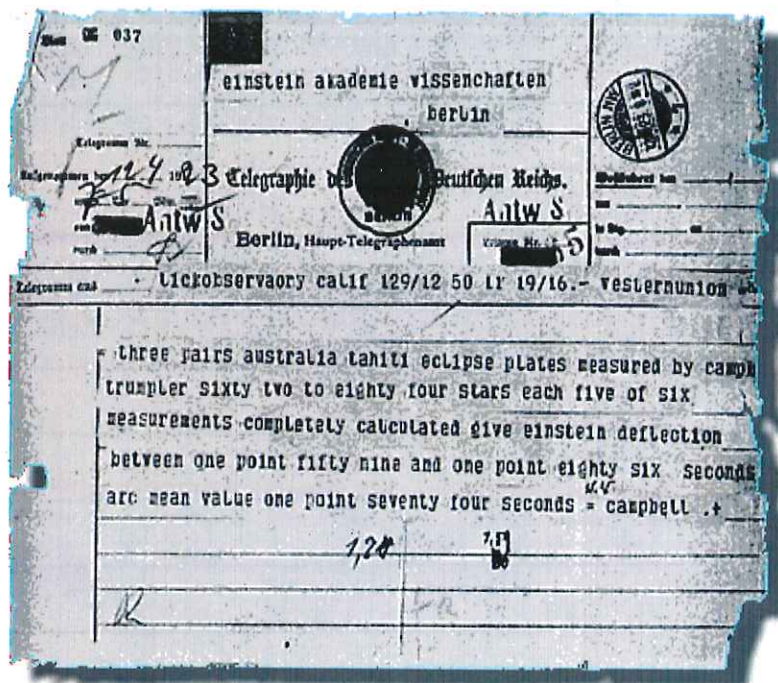 037
einstein akademie wissenchaften
berlin
Telegramm Nr.
12.4 1923
Telegraphie des Deutschen Reichs.
Antw S
Antw S
Berlin, Haupt-Telegraphenamt
Telegramm aus
lickobservaory calif 129/12 50 lr 19/16.- vesternunion
= three pairs australia tahiti eclipse plates measured by camp
trumpler sixty two to eighty four stars each five of six
measurements completely calculated give einstein deflection
between one point fifty nine and one point eighty six seconds
arc mean value one point seventy four seconds = campbell .+